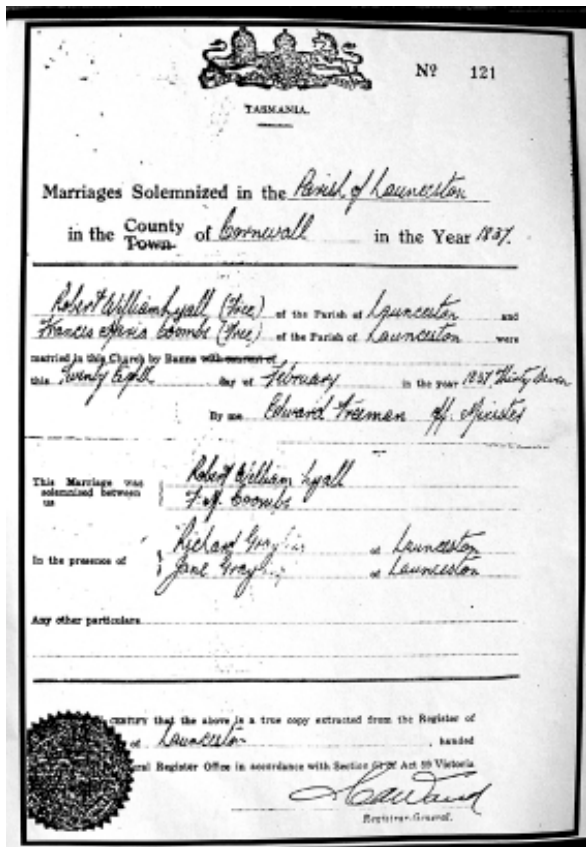 Nº 121
TASMANIA.
Marriages Solemnized in the Parish of Launceston
in the County Town of Cornwall in the Year 1837.
Robert William Lyall (Free) of the Parish of Launceston and
Francis Maria Coombs (Free) of the Parish of Launceston were
married in this Church by Banns with consent of
this Twenty Eighth day of February in the year 1837 Thirty Seven
By me Edward Freeman Off. Minister
This Marriage was solemnized between us
Robert William Lyall
F. M. Coombs
In the presence of
Richard of Launceston
Jane of Launceston
Any other particulars
CERTIFY that the above is a true copy extracted from the Register of
of Launceston, handed
Register Office in accordance with Section of Act 59 Victoria
Registrar-General.